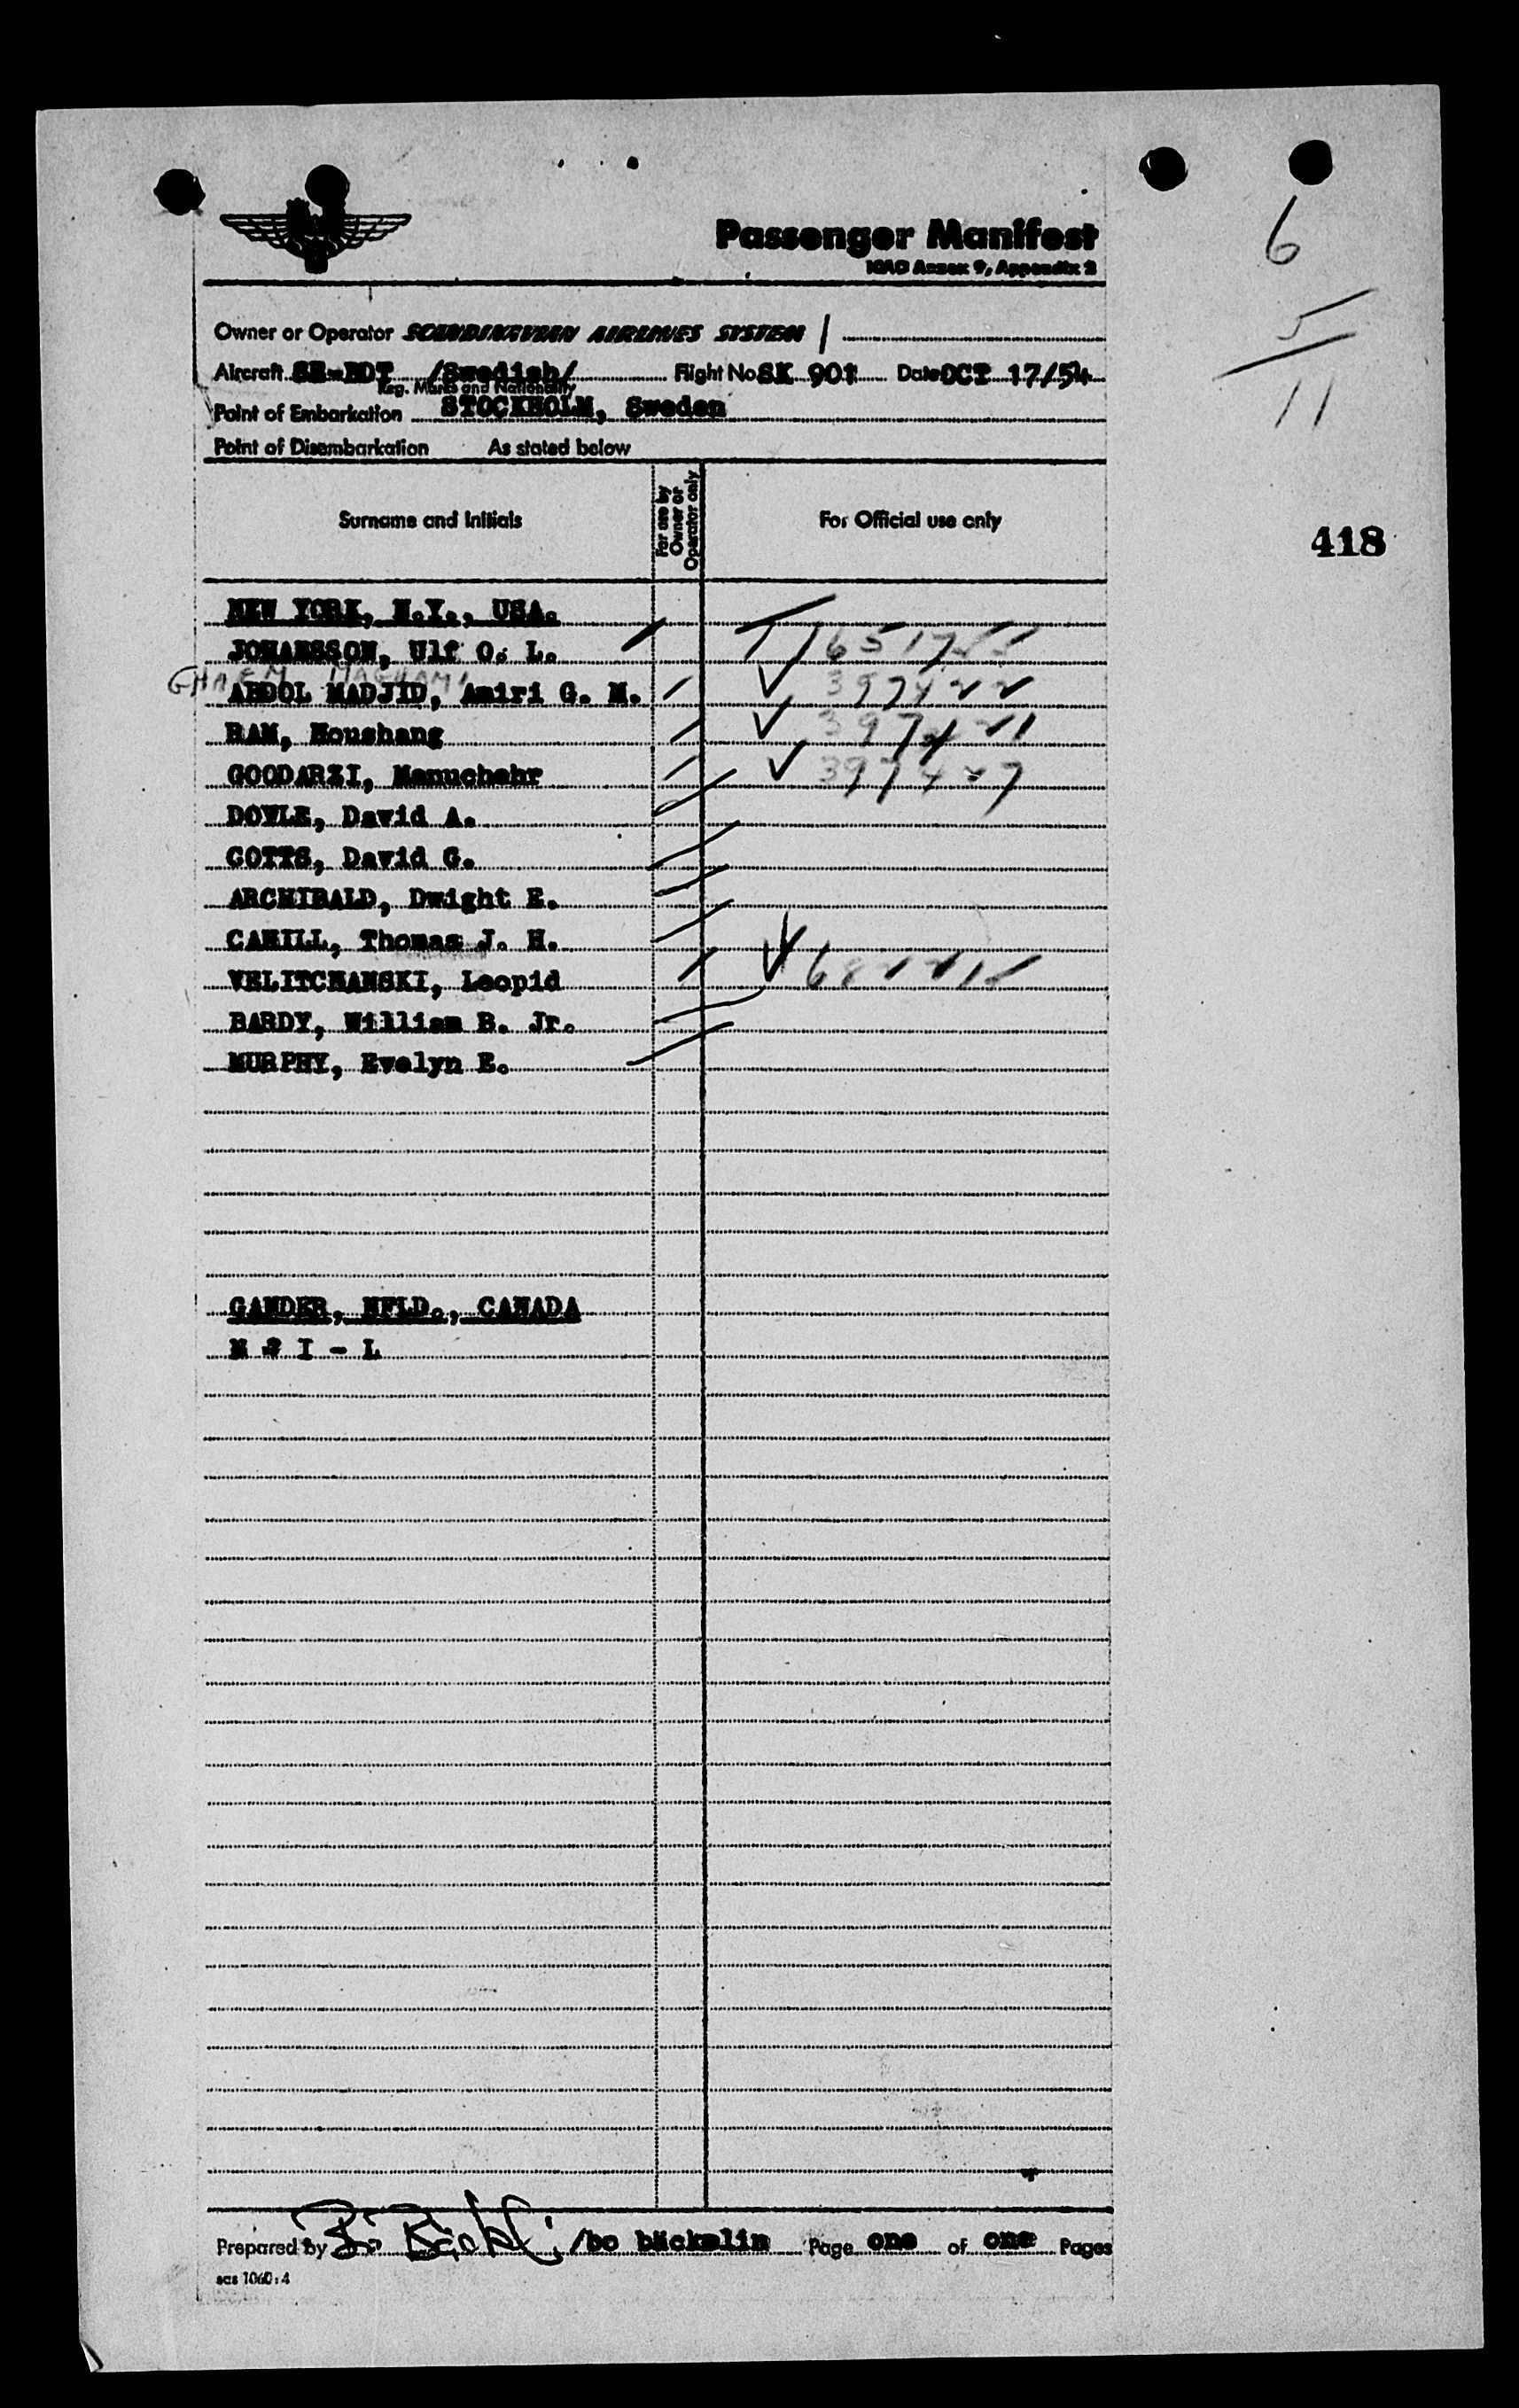 Passenger Manifest
ICAO Annex 9, Appendix 2
6
5
11
Owner or Operator SCANDINAVIAN AIRLINES SYSTEM
Aircraft SE-BDT /Swedish/ Flight No SK 901 Date OCT 17/54
Reg. Marks and Nationality
Point of Embarkation STOCKHOLM, Sweden
Point of Disembarkation As stated below
Surname and Initials For use by Owner or Operator only For Official use only
418
NEW YORK, N.Y., USA.
JOHANSSON, Ulf O. L.
GHAEM MAGHAMI
ABDOL MADJID, Amiri G. M. 397422
RAM, Houshang 397421
GOODARZI, Manuchehr 397427
DOYLE, David A.
COTTS, David G.
ARCHIBALD, Dwight E.
CAHILL, Thomas J. H.
VELITCHANSKI, Leopid
BARDY, William B. Jr.
MURPHY, Evelyn E.
GANDER, NFLD., CANADA
N I - L
Prepared by /bo bäckelin Page one of one Pages
sas 1060:4